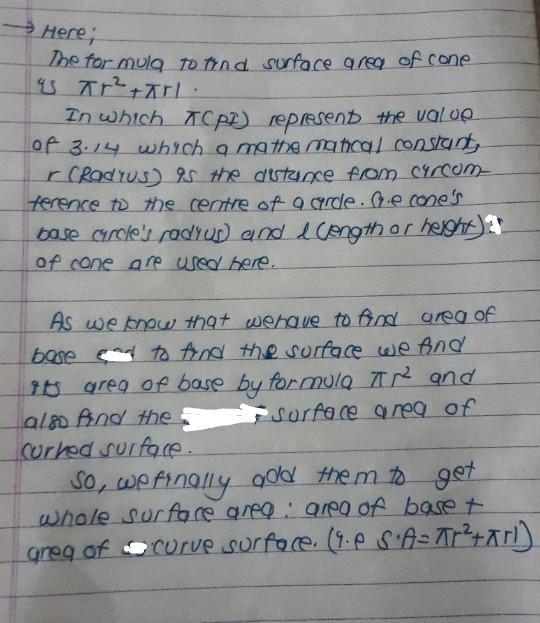 → Here;
The formula to find surface area of cone
is πr²+πrl.
In which π(PI) represent the value
of 3.14 which a mathematical constant,
r (Radius) is the distance from circum-
ference to the centre of a circle. (i.e cone's
base circle's radius) and l (length or height)
of cone are used here.
As we know that we have to find area of
base to find the surface we find
its area of base by formula πr² and
also find the surface area of
curved surface.
So, we finally add them to get
whole surface area: area of base +
area of curve surface. (i.e S.A = πr²+πrl)